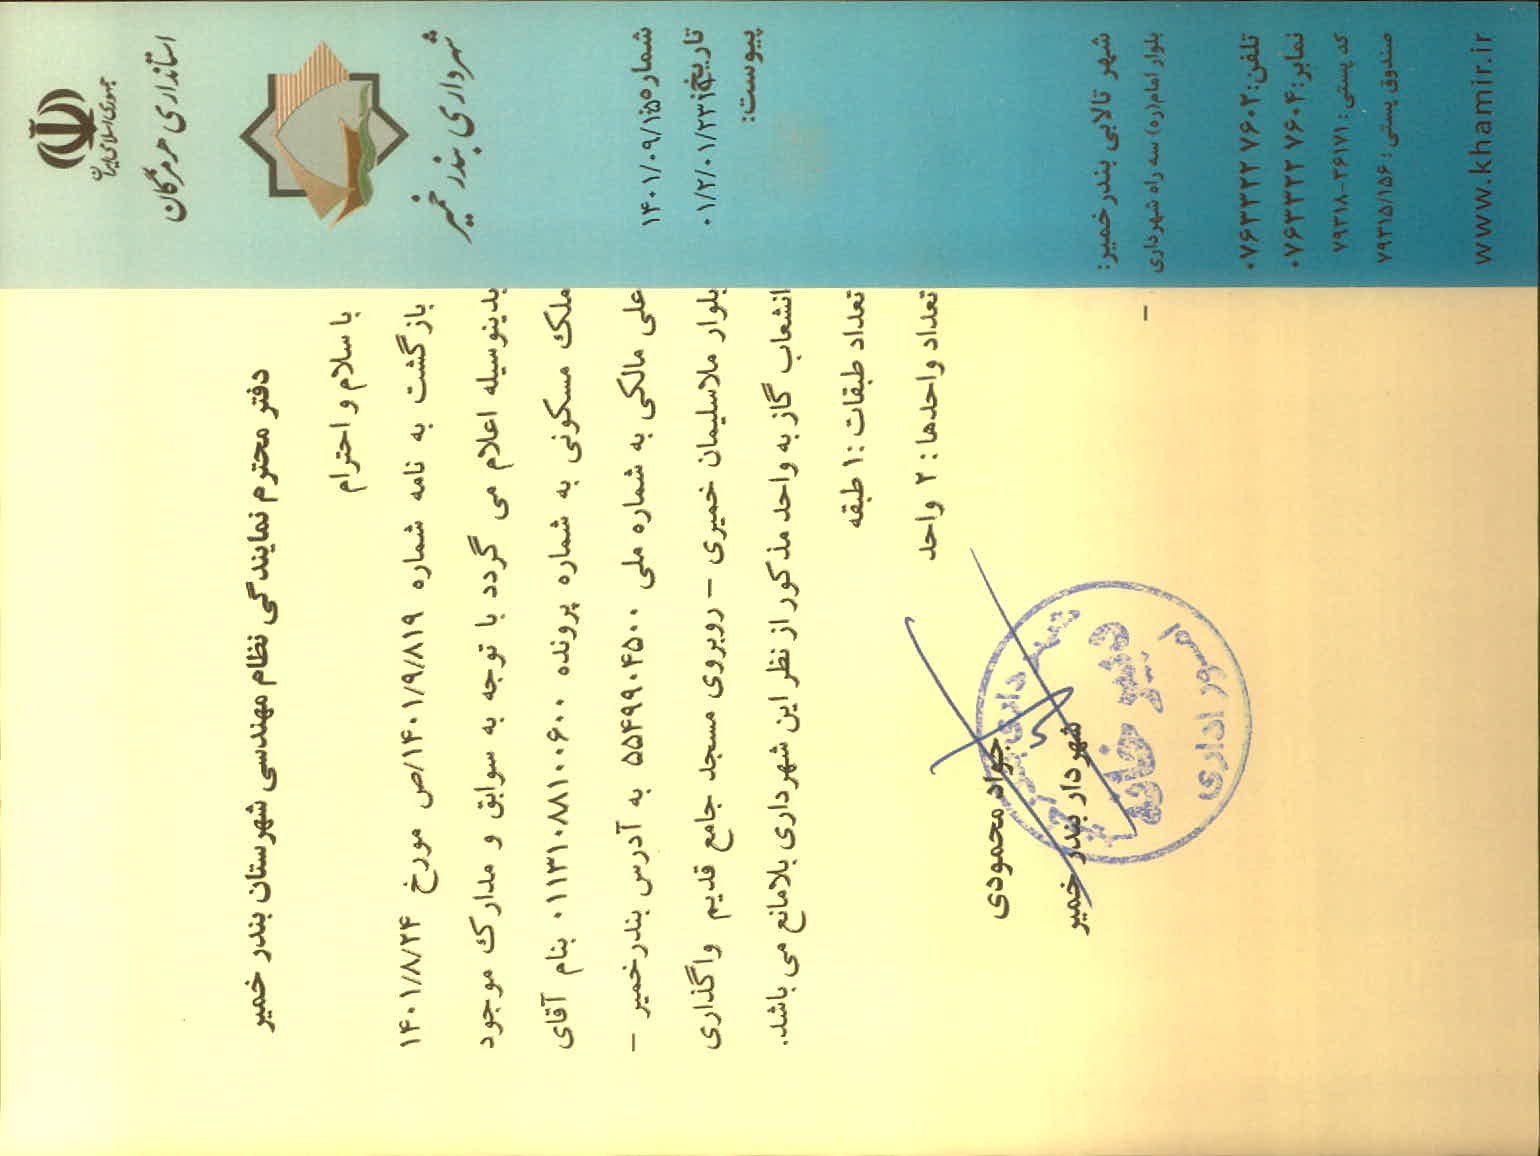 جمهوری اسلامی ایران
استانداری هرمزگان
شهرداری بندر خمیر
شماره:
۱۴۰۱/۰۹/۱۵۵
تاریخ:
۰۱/۲/۰۱/۲۳۱۹
پیوست:
دفتر محترم نمایندگی نظام مهندسی شهرستان بندر خمیر
با سلام و احترام
بازگشت به نامه شماره ۱۴۰۱/۹/۸۱۹/ص مورخ ۱۴۰۱/۸/۲۴
بدینوسیله اعلام می گردد با توجه به سوابق و مدارک موجود
ملک مسکونی به شماره پرونده ۰۱۱۳۱۰۸۸۱۰۰۶۰۰ بنام آقای
علی مالکی به شماره ملی ۵۵۴۹۹۰۴۵۰۰ به آدرس بندرخمیر –
بلوار ملاسلیمان خمیری – روبروی مسجد جامع قدیم واگذاری
انشعاب گاز به واحد مذکور از نظر این شهرداری بلامانع می باشد.
تعداد طبقات :۱ طبقه
تعداد واحدها : ۲ واحد
جواد محمودی
شهردار بندر خمیر
دبیرخانه
امور اداری
شهر تالابی بندرخمیر:
بلوار امام(ره) سه راه شهرداری
تلفن: ۰۷۶۳۳۲۲۷۶۰۲
نمابر: ۰۷۶۳۳۲۲۷۶۰۴
کد پستی: ۷۹۳۱۸-۳۶۱۷۱
صندوق پستی: ۷۹۳۱۵/۱۵۶
www.khamir.ir